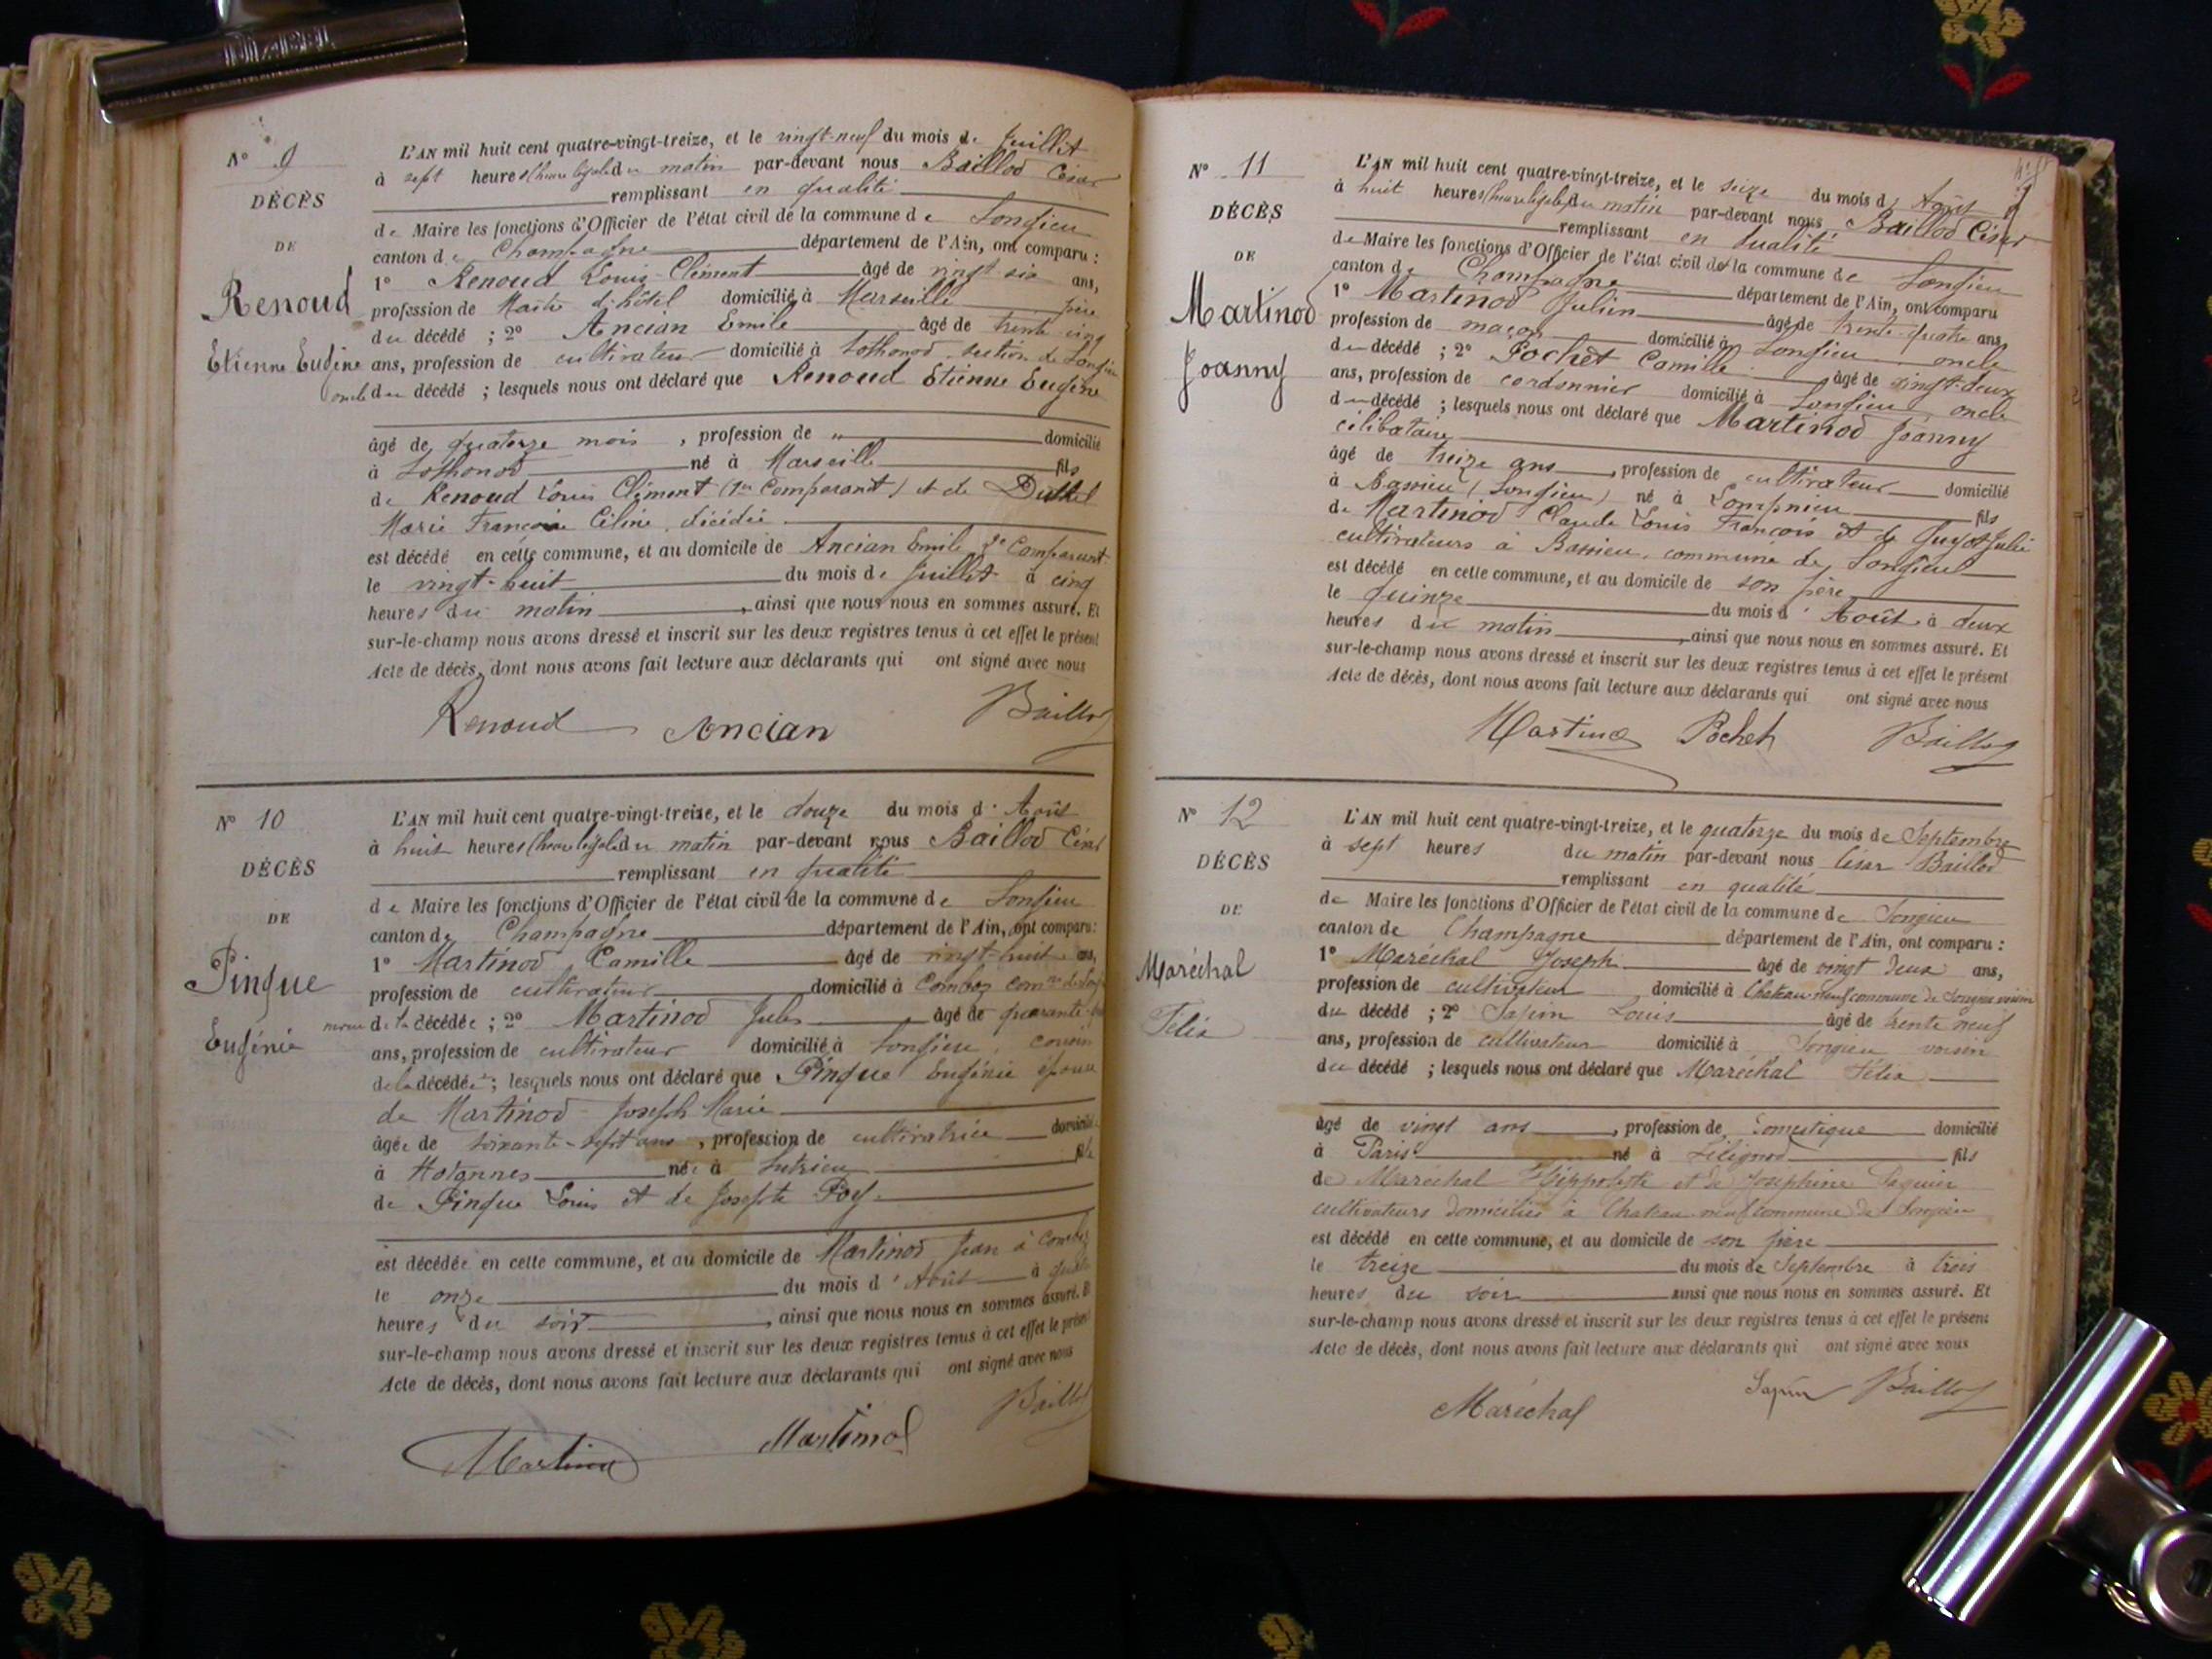 N° 9
DÉCÈS
DE
Renoud
Etienne Eugène
L'AN mil huit cent quatre-vingt-treize, et le vingt-neuf du mois de Juillet
à sept heures (heure légale) du matin par-devant nous Baillod César
remplissant en qualité
de Maire les fonctions d'Officier de l'état civil de la commune de Songieu
canton de Champagne département de l'Ain, ont comparu :
1° Renoud Louis-Clément âgé de vingt-six ans,
profession de Maître d'hôtel domicilié à Marseille père
du décédé ; 2° Ancian Emile âgé de trente cinq
ans, profession de cultivateur domicilié à Sothonod section de Songieu
oncle du décédé ; lesquels nous ont déclaré que Renoud Etienne Eugène
âgé de quatorze mois , profession de " domicilié
à Sothonod né à Marseille fils
de Renoud Louis Clément (1er Comparant) et de
Marie Françoise Céline, décédée
est décédé en cette commune, et au domicile de Ancian Emile 2e Comparant
le vingt-huit du mois de Juillet à cinq
heures du matin , ainsi que nous nous en sommes assuré. Et
sur-le-champ nous avons dressé et inscrit sur les deux registres tenus à cet effet le présent
Acte de décès, dont nous avons fait lecture aux déclarants qui ont signé avec nous
Renoud Ancian Baillod
N° 10
DÉCÈS
DE
Pingue
Eugénie
L'AN mil huit cent quatre-vingt-treize, et le douze du mois d' Août
à huit heures (heure légale) du matin par-devant nous Baillod César
remplissant en qualité
de Maire les fonctions d'Officier de l'état civil de la commune de Songieu
canton de Champagne département de l'Ain, ont comparu :
1° Martinod Camille âgé de vingt-huit ans,
profession de cultivateur domicilié à Comboz
neveu de la décédée ; 2° Martinod Jules âgé de quarante
ans, profession de cultivateur domicilié à Songieu, cousin
de la décédée ; lesquels nous ont déclaré que Pingue Eugénie épouse
de Martinod Joseph Marie
âgée de soixante-sept ans , profession de cultivatrice domiciliée
à Hotonnes née à Sutrieu fille
de Pingue Louis et de Josephte Poy
est décédée en cette commune, et au domicile de Martinod Jean à Comboz
le onze du mois d' Août à quatre
heures du soir , ainsi que nous nous en sommes assuré. Et
sur-le-champ nous avons dressé et inscrit sur les deux registres tenus à cet effet le présent
Acte de décès, dont nous avons fait lecture aux déclarants qui ont signé avec nous
Martinod Martinod Baillod
N° 11
DÉCÈS
DE
Martinod
Joanny
L'AN mil huit cent quatre-vingt-treize, et le seize du mois d' Août
à huit heures (heure légale) du matin par-devant nous Baillod César
remplissant en qualité
de Maire les fonctions d'Officier de l'état civil de la commune de Songieu
canton de Champagne département de l'Ain, ont comparu
1° Martinod Julien âgé de trente-quatre ans,
profession de maçon domicilié à Songieu oncle
du décédé ; 2° Pochet Camille âgé de vingt-deux
ans, profession de cordonnier domicilié à Songieu, oncle
du décédé ; lesquels nous ont déclaré que Martinod Joanny
célibataire
âgé de treize ans , profession de cultivateur domicilié
à Bassieu (Songieu) né à Lompnieu fils
de Martinod Claude Louis François et de Guyot Julie
cultivateurs à Bassieu, commune de Songieu
est décédé en cette commune, et au domicile de son père
le quinze du mois d' Août à deux
heures du matin , ainsi que nous nous en sommes assuré. Et
sur-le-champ nous avons dressé et inscrit sur les deux registres tenus à cet effet le présent
Acte de décès, dont nous avons fait lecture aux déclarants qui ont signé avec nous
Martinod Pochet Baillod
N° 12
DÉCÈS
DE
Maréchal
Félix
L'AN mil huit cent quatre-vingt-treize, et le quatorze du mois de Septembre
à sept heures du matin par-devant nous César Baillod
remplissant en qualité
de Maire les fonctions d'Officier de l'état civil de la commune de Songieu
canton de Champagne département de l'Ain, ont comparu :
1° Maréchal Joseph âgé de vingt deux ans,
profession de cultivateur domicilié à Chateauneuf commune de Songieu voisin
du décédé ; 2° Sapin Louis âgé de trente neuf
ans, profession de cultivateur domicilié à Songieu voisin
du décédé ; lesquels nous ont déclaré que Maréchal Félix
âgé de vingt ans , profession de domestique domicilié
à Paris né à Lilignod fils
de Maréchal Hippolyte et de Joséphine Paquin
cultivateurs domiciliés à Chateauneuf commune de Songieu
est décédé en cette commune, et au domicile de son père
le treize du mois de Septembre à trois
heures du soir ainsi que nous nous en sommes assuré. Et
sur-le-champ nous avons dressé et inscrit sur les deux registres tenus à cet effet le présent
Acte de décès, dont nous avons fait lecture aux déclarants qui ont signé avec nous
Maréchal Sapin Baillod